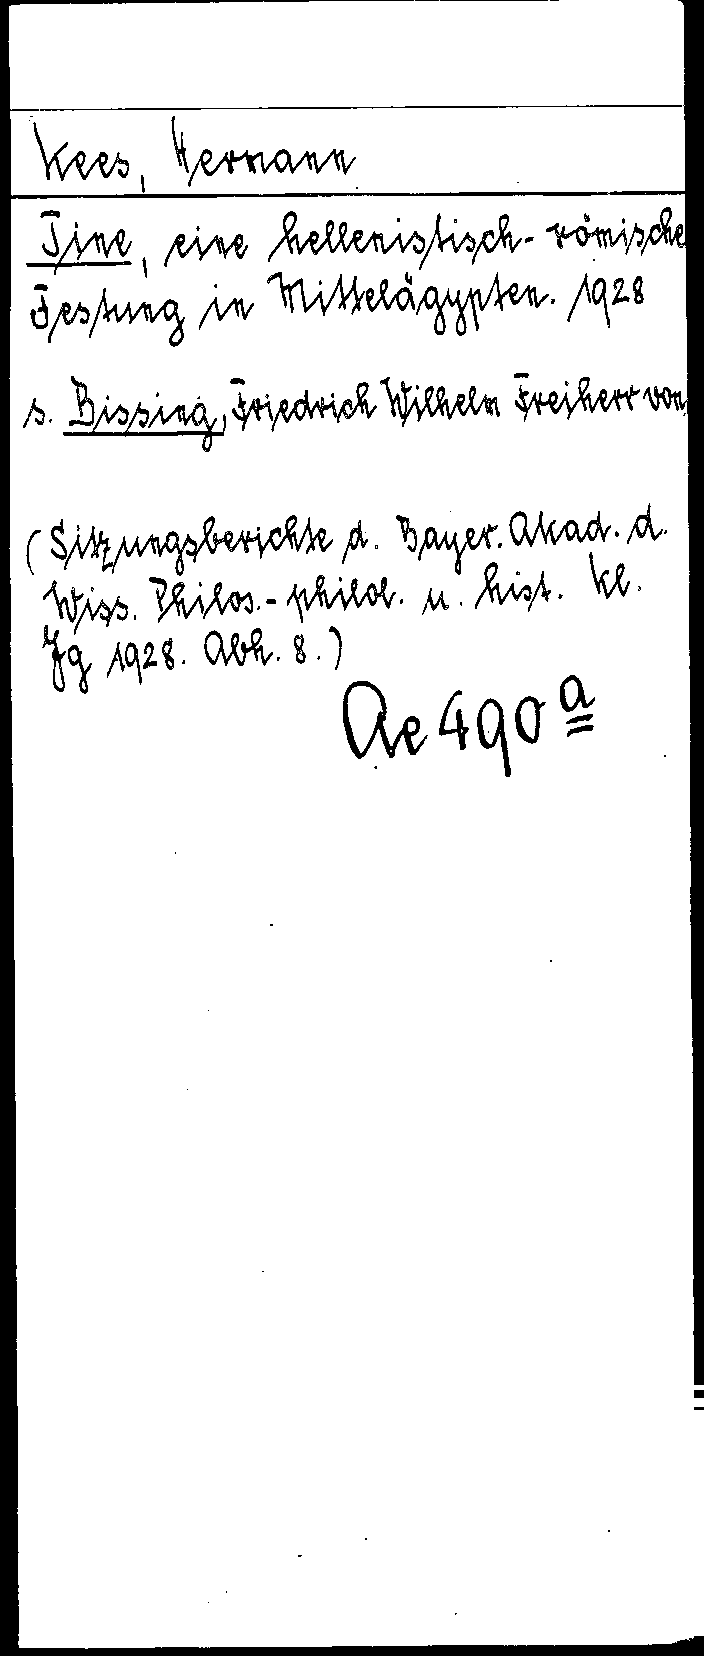 Kees, Hermann
Tine, eine hellenistisch-römische
Festung in Mittelägypten. 1928
s. Bissing, Friedrich Wilhelm Freiherr von
(Sitzungsberichte d. Bayer. Akad. d.
Wiss. Philos.-philol. u. hist. Kl.
Jg 1928. Abh. 8.)
Ae 490 a